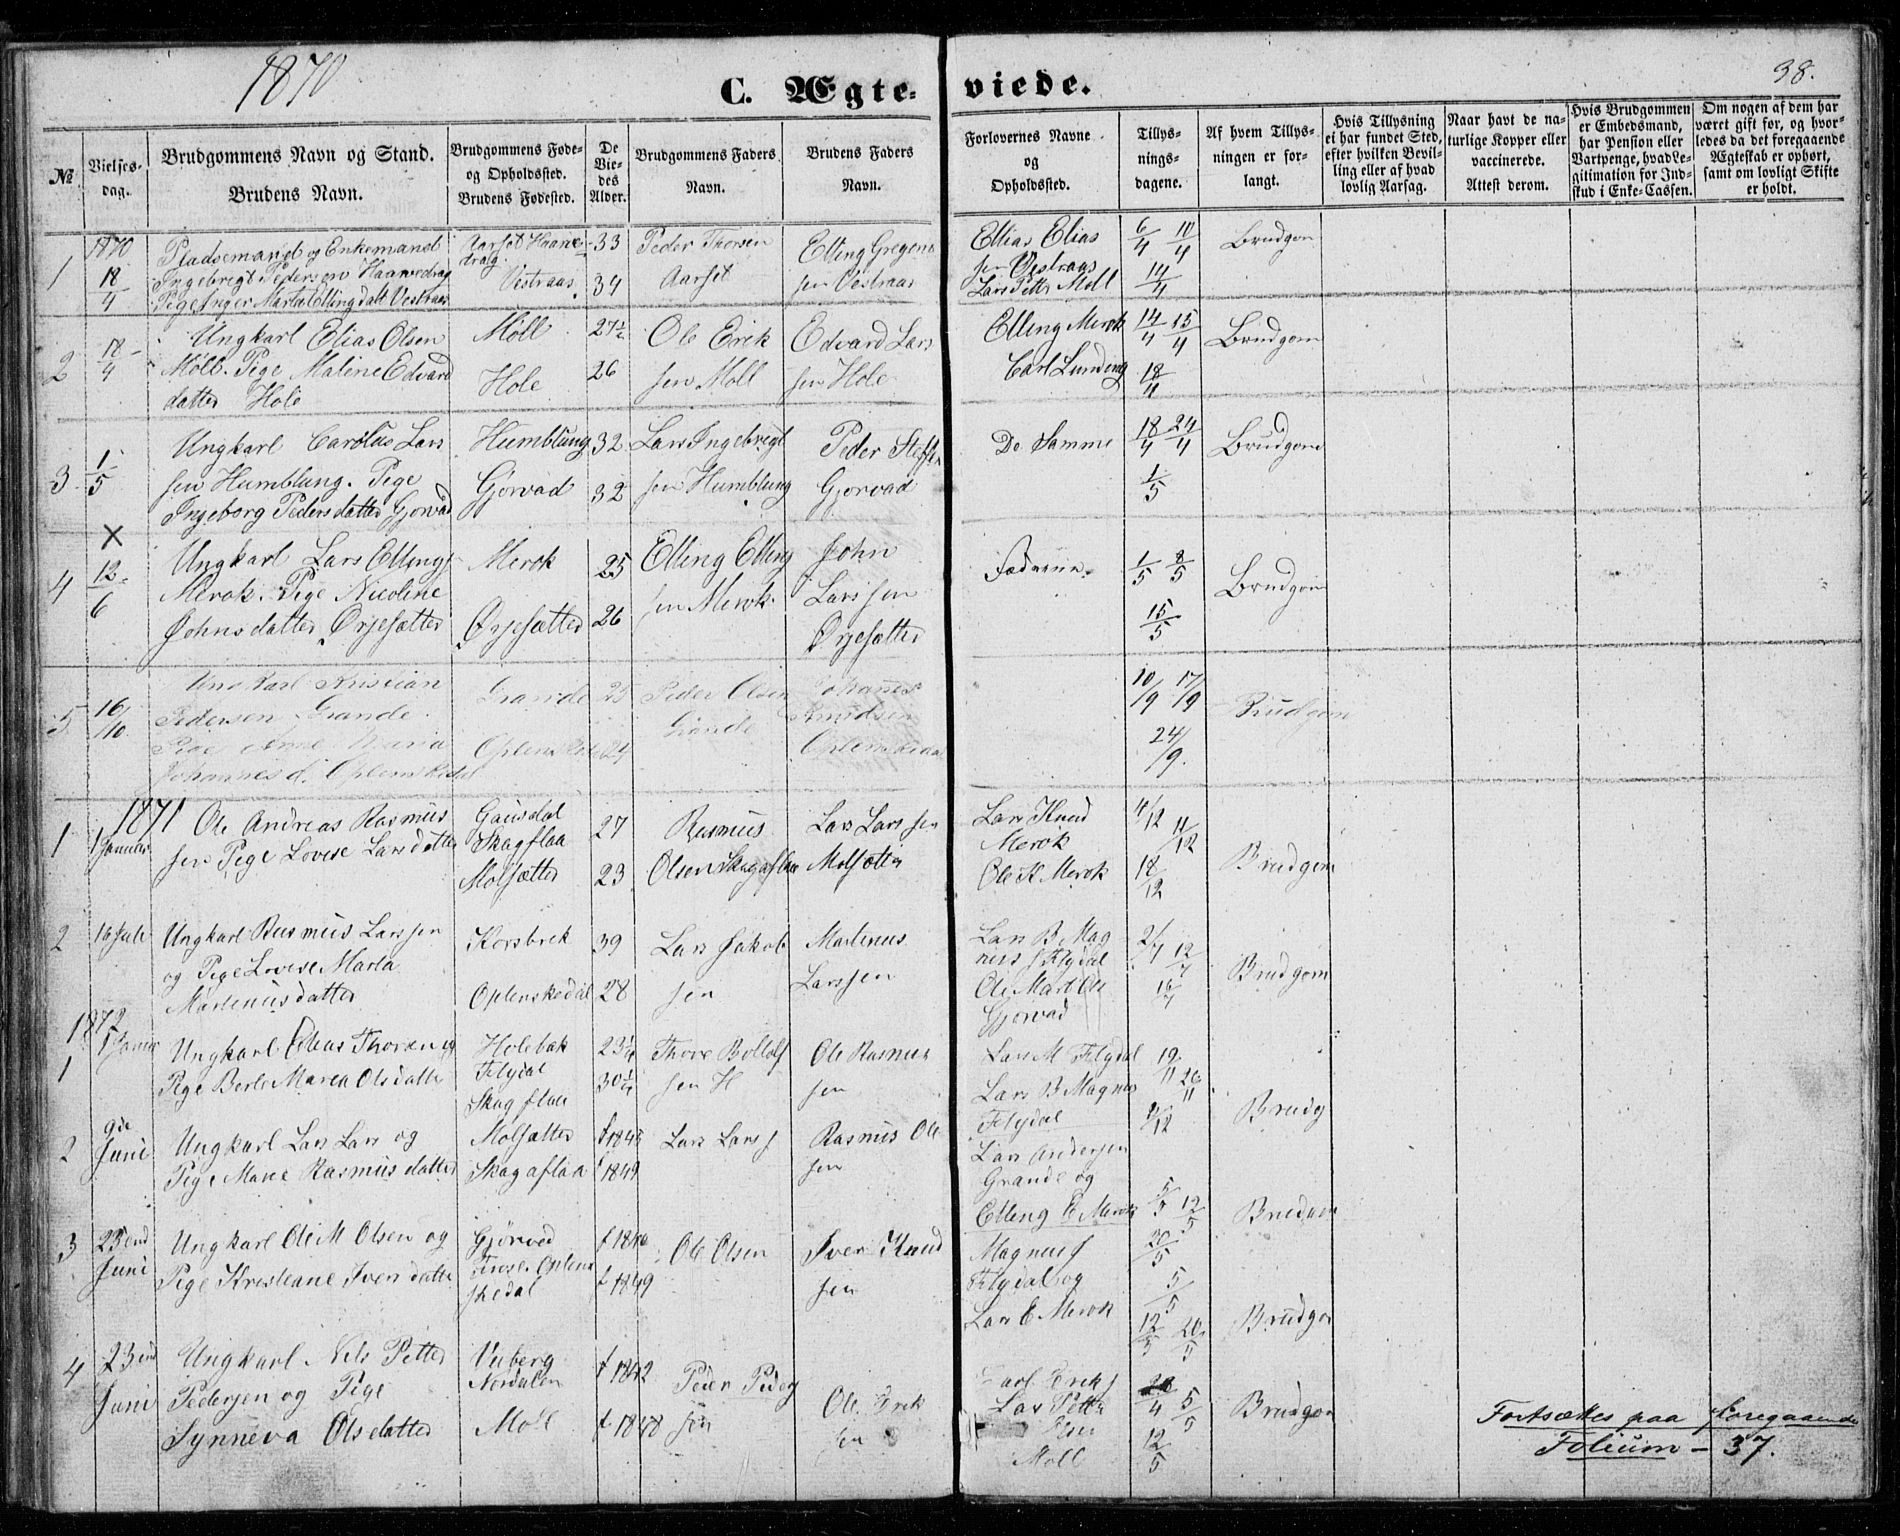 1870
C. Ægte-
viede.
38.
No.
Vielses-
dag.
Brudgommens Navn og Stand.
Brudens Navn.
Brudgommens Føde-
og Opholdssted.
Brudens Fødested.
De
Vie-
des
Alder.
Brudgommens Faders
Navn.
Brudens Faders
Navn.
Forlovernes Navne
og
Opholdssted.
Tillys-
nings-
dagene.
Af hvem Tillys-
ningen er for-
langt.
Hvis Tillysning
ei har fundet Sted,
efter hvilken Bevil-
ling eller af hvad
lovlig Aarsag.
Naar havt de na-
turlige Kopper eller
vaccinerede.
Attest derom.
Hvis Brudgommen
er Embedsmand,
har Pension eller
Vartpenge, hvad Le-
gitimation for Ind-
skud i Enke-Cassen.
Om nogen af dem har
været gift før, og hvor-
ledes da det foregaaende
Ægteskab er ophørt,
samt om lovligt Skifte
er holdt.
1
1870
18/4
Pladsemand og Enkemand
Ingebregt Pedersen Haanedrag
Pige Inger Marta Elling datt Vestraas
Aarset Haane-
drag.
Vestraas
33
34
Peder Thorsen
Aarset
Elling Gregers
sen Vestraas
Ellias Elias
sen Vestraas
Lars Pett Moll
6/4 10/4
14/4
Brudgom
2
18/4
Ungkarl Elias Olsen
Möll. Pige Maline Edvard
datter Hole
Möll
Hole
27½
26
Ole Erik
sen Moll
Edvard Lars
sen Hole
Elling Merok
Carl Lunding
14/4 15/4
18/4
Brudgom
3
1/5
Ungkarl Carolus Lars
sen Humblung. Pige
Ingeborg Pedersdatter Gjorvad
Humblung
Gjorvad
32
32
Lars Ingebregt
sen Humblung
Peder Steffen
Gjorvad
De Samme
18/4 24/4
1/5
Brudgom
×
4
12/6
Ungkarl Lars Ellings
Merok. Pige Nicoline
Johnsdatter Ørjesætter
Merok
Ørjesætter
25
26
Elling Elling
sen Merok.
John
Larssen
Ørjesætter
Fædrene.
1/5 8/5
15/5
Brudgom
5
16/10
Ungkarl Kristian
Pedersen Grande
Pige Ane Maria
Johannes d. Oplenskedal
Grande
Oplenskedal
25
24
Peder Olsen
Grande
Johannes
Knudsen
10/9 17/9
24/9.
Brudgom
1871
1
1 Januar
Ole Andreas Rasmus
sen Pige Lovise Larsdatter
Gausdal
Skagflaa
Molsætter
27
23
Rasmus
Olsen Skagaflaa
Lars Lars sen
Molsætter
Lars Knud
Merok
Ole K Merok
4/12 11/12
18/12
Brudgom
2
16 Juli
Ungkarl Rasmus Larssen
og Pige Lovise Marta
Martenusdatter
Korsbrek
Oplenskedal
39
28
Lars Jakob
sen
Martenus
Larssen
Lars B Mag
nus s Flydal
Ole Mart Ole
Gjorvad
2/7 12/7
16/7
Brudgom
1872
1
1 Januar
Ungkarl Elias Thoresen og
Pige Berte Maria Olsdatter
Holebak
Flydal
Skagflaa
23¼
30¼
Thore Bottolf
sen H
Ole Rasmus
sen
Lars M Flydal
Lars B Magnus
Flydal
19/11 26/11
2/12
Brudg
2
9de
Juni
Ungkarl Lars Lars og
Pige Marie Rasmusdatter
Molsætter
Skagaflaa
f 1848
f 1849
Lars Lars s
Rasmus Ole
sen
Lars Andersen
Grande og
Elling E Merok
5/5 12/5
20/5
Brudgom
3
23end
Juni
Ungkarl Ole M Olsen og
Pige Kristeane Iversdatter
Gjørved
Oplens
skedal
f 1846
f 1849
Ole Olsen
Iver Knud
sen
Magnus s
Flydal og
Lars E Merok
5/5
12/5 20/5
Brudgom
4
23end
Juni
Ungkarl Nils Petter
Pedersen og Pige
Synneva Olsdatter
Viiberg
Nordalen
Moll
f 1842
f 1848
Peder Peders
sen
Ole Erik
sen
Karl Eriks
Lars Petter
Moll
28/4 5/5
12/5
Brudgom
Fortsættes paa foregaaende
Folium - 37.